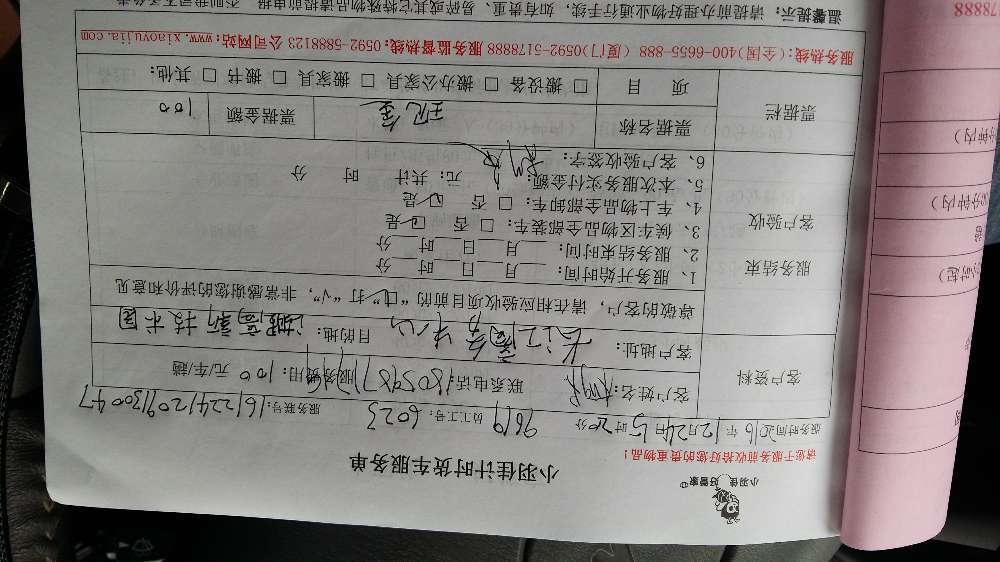 小羽佳 好管家
小羽佳计时货车服务单
请您于服务前收拾好您的贵重物品!
服务时间:2016年12月24日15时20分 9619 员工工号:6023 服务账号:16122412091300047
客户资料
客户姓名: 联系电话: 服务费用:100元/车/趟
客户地址:长江商务中心 目的地:湖高新技术园
服务结束
客户验收
尊敬的客户,请在相应验收项目前的“□”打“√”,非常感谢您的评价和意见
1、服务开始时间:__月__日__时__分
2、服务结束时间:__月__日__时__分
3、候车区物品全部车装:□ 否 ☑ 是
4、车上物品全部卸车:□ 否 ☑ 是
5、本次服务实付金额: 元;共计 时 分
6、客户验收签字:
票据栏
票据名称 现金 票据金额 100
项 目 □ 搬设备 □ 搬办公家具 □ 搬家具 □ 搬书 □ 其他:
服务热线:(全国)400-6655-888 (厦门)0592-5178888 服务监督热线:0592-5888123 公司网站:www.xiaoyujia.com
温馨提示:请提前办理好物业通行手续,如有贵重、易碎或其它特殊物品请提前申报,否则我司不予负责
钟内)
分钟内)
小时起)
78888